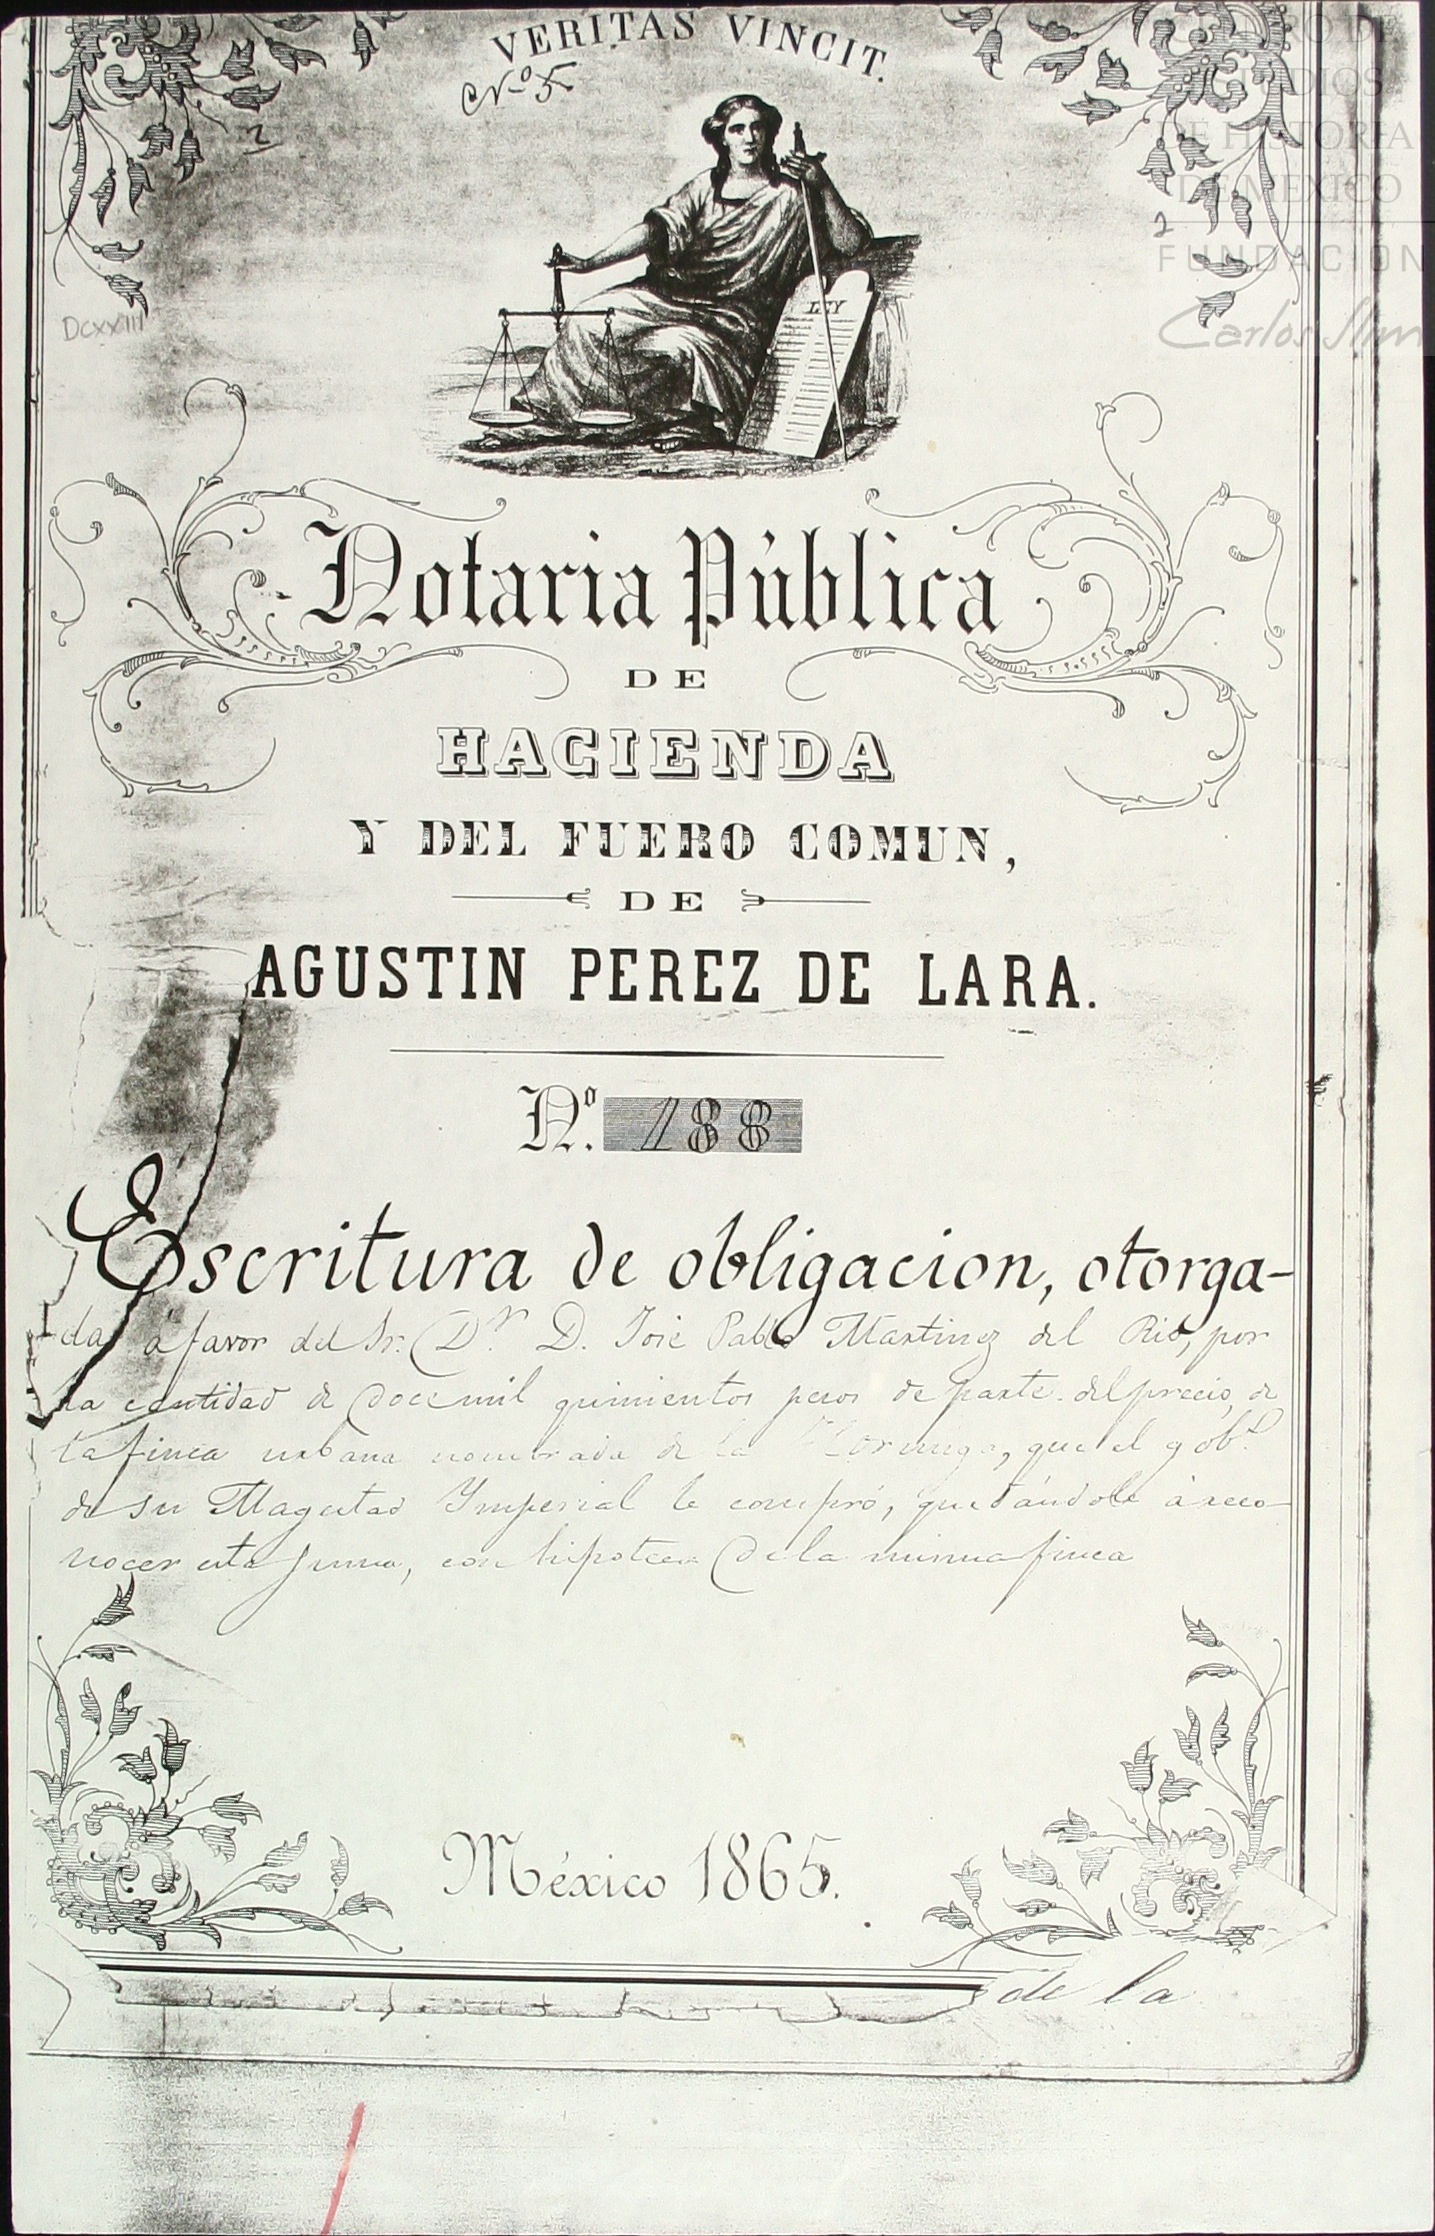 VERITAS VINCIT.
Nº 5
2
CENTRO DE
ESTUDIOS
DE HISTORIA
DE MEXICO
2
FUNDACION
Carlos Slim
DCXXIII
LEY
Notaria Pública
DE
HACIENDA
Y DEL FUERO COMUN,
DE
AGUSTIN PEREZ DE LARA.
Nº. 188
Escritura de obligacion, otorga-
da á favor del Sr. Dr. D. José Pablo Martinez del Rio, por
la cantidad de doce mil quinientos pesos de parte del precio, de
la finca urbana nombrada de la Hormiga, que el gobº
de su Magestad Imperial le compró, quedándole á reco-
nocer esta suma, con hipoteca de la misma finca
México 1865.
de la